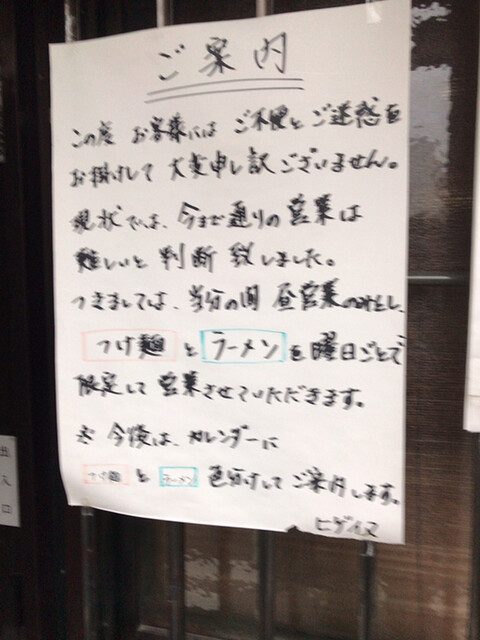 ご案内
この度 お客様には ご不便と ご迷惑を
お掛けして 大変申し訳ございません。
現状では、今まで通りの営業は
難しいと 判断 致しました。
つきましては、当分の間 昼営業のみとし、
つけ麺 と ラーメン を 曜日ごとで
限定して 営業させていただきます。
※ 今後は、カレンダーに
つけ麺 と ラーメン 色分けして ご案内します。
出入口